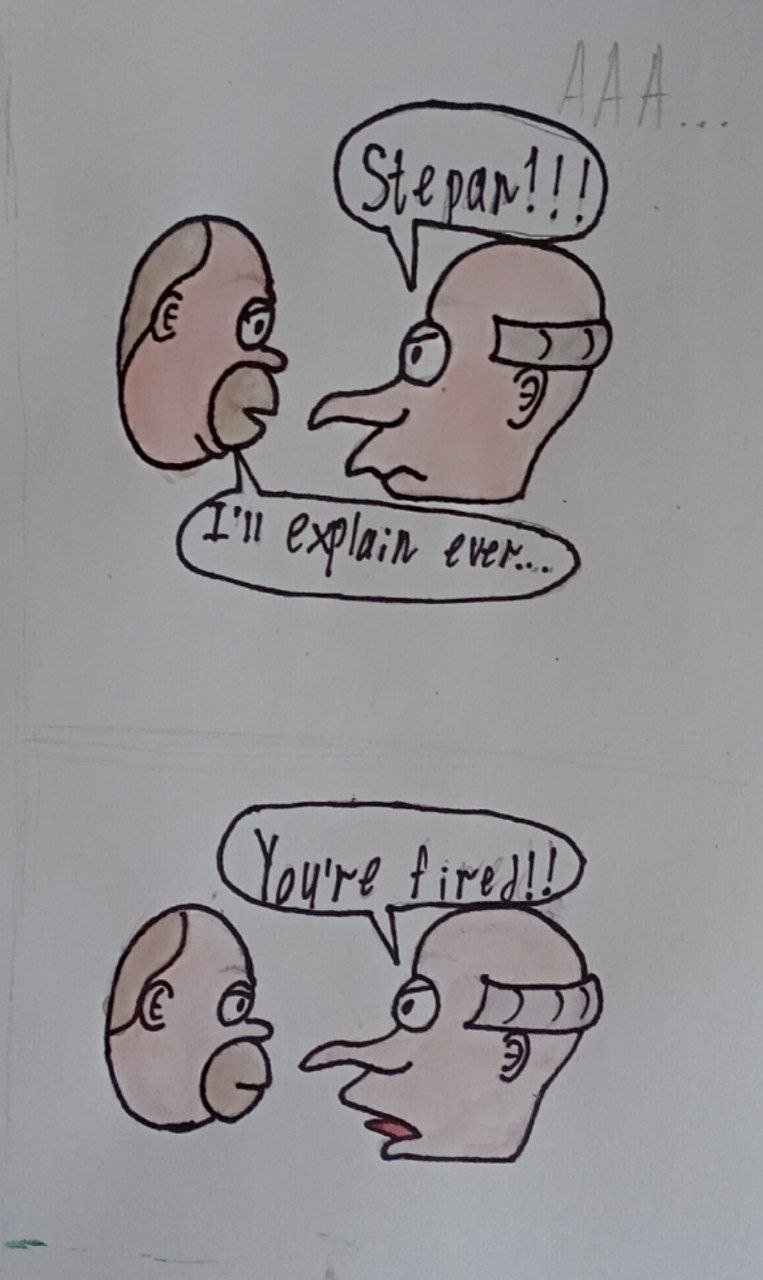 AAA...
Stepan!!!
I'll explain ever...
You're fired!!